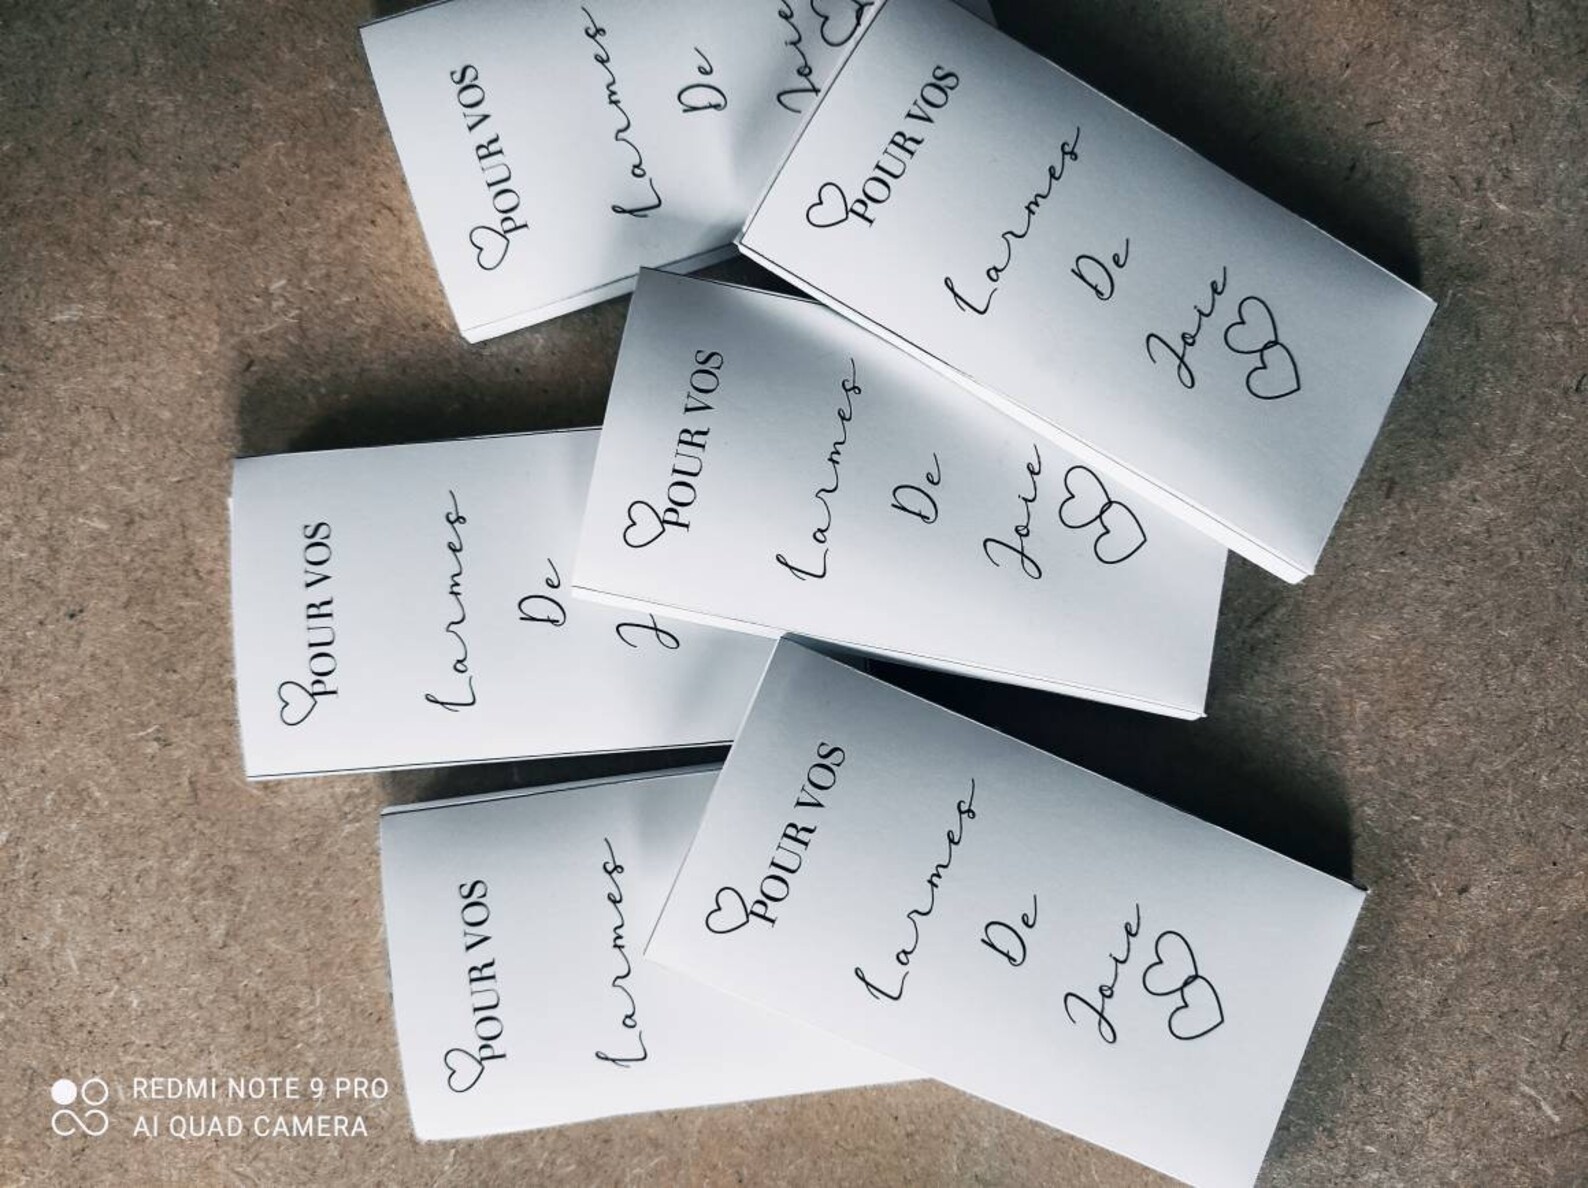 POUR VOS
Larmes
De
Joie
POUR VOS
Larmes
De
Joie
POUR VOS
Larmes
De
Joie
POUR VOS
Larmes
De
J
POUR VOS
Larmes
De
Joie
POUR VOS
Larmes
REDMI NOTE 9 PRO
AI QUAD CAMERA